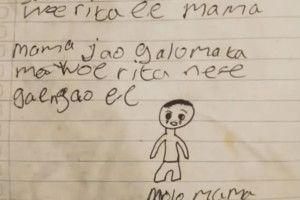 woe rita ee mama
mama jao galomaka
ma woe rita nefe
gaengao el
molo mama